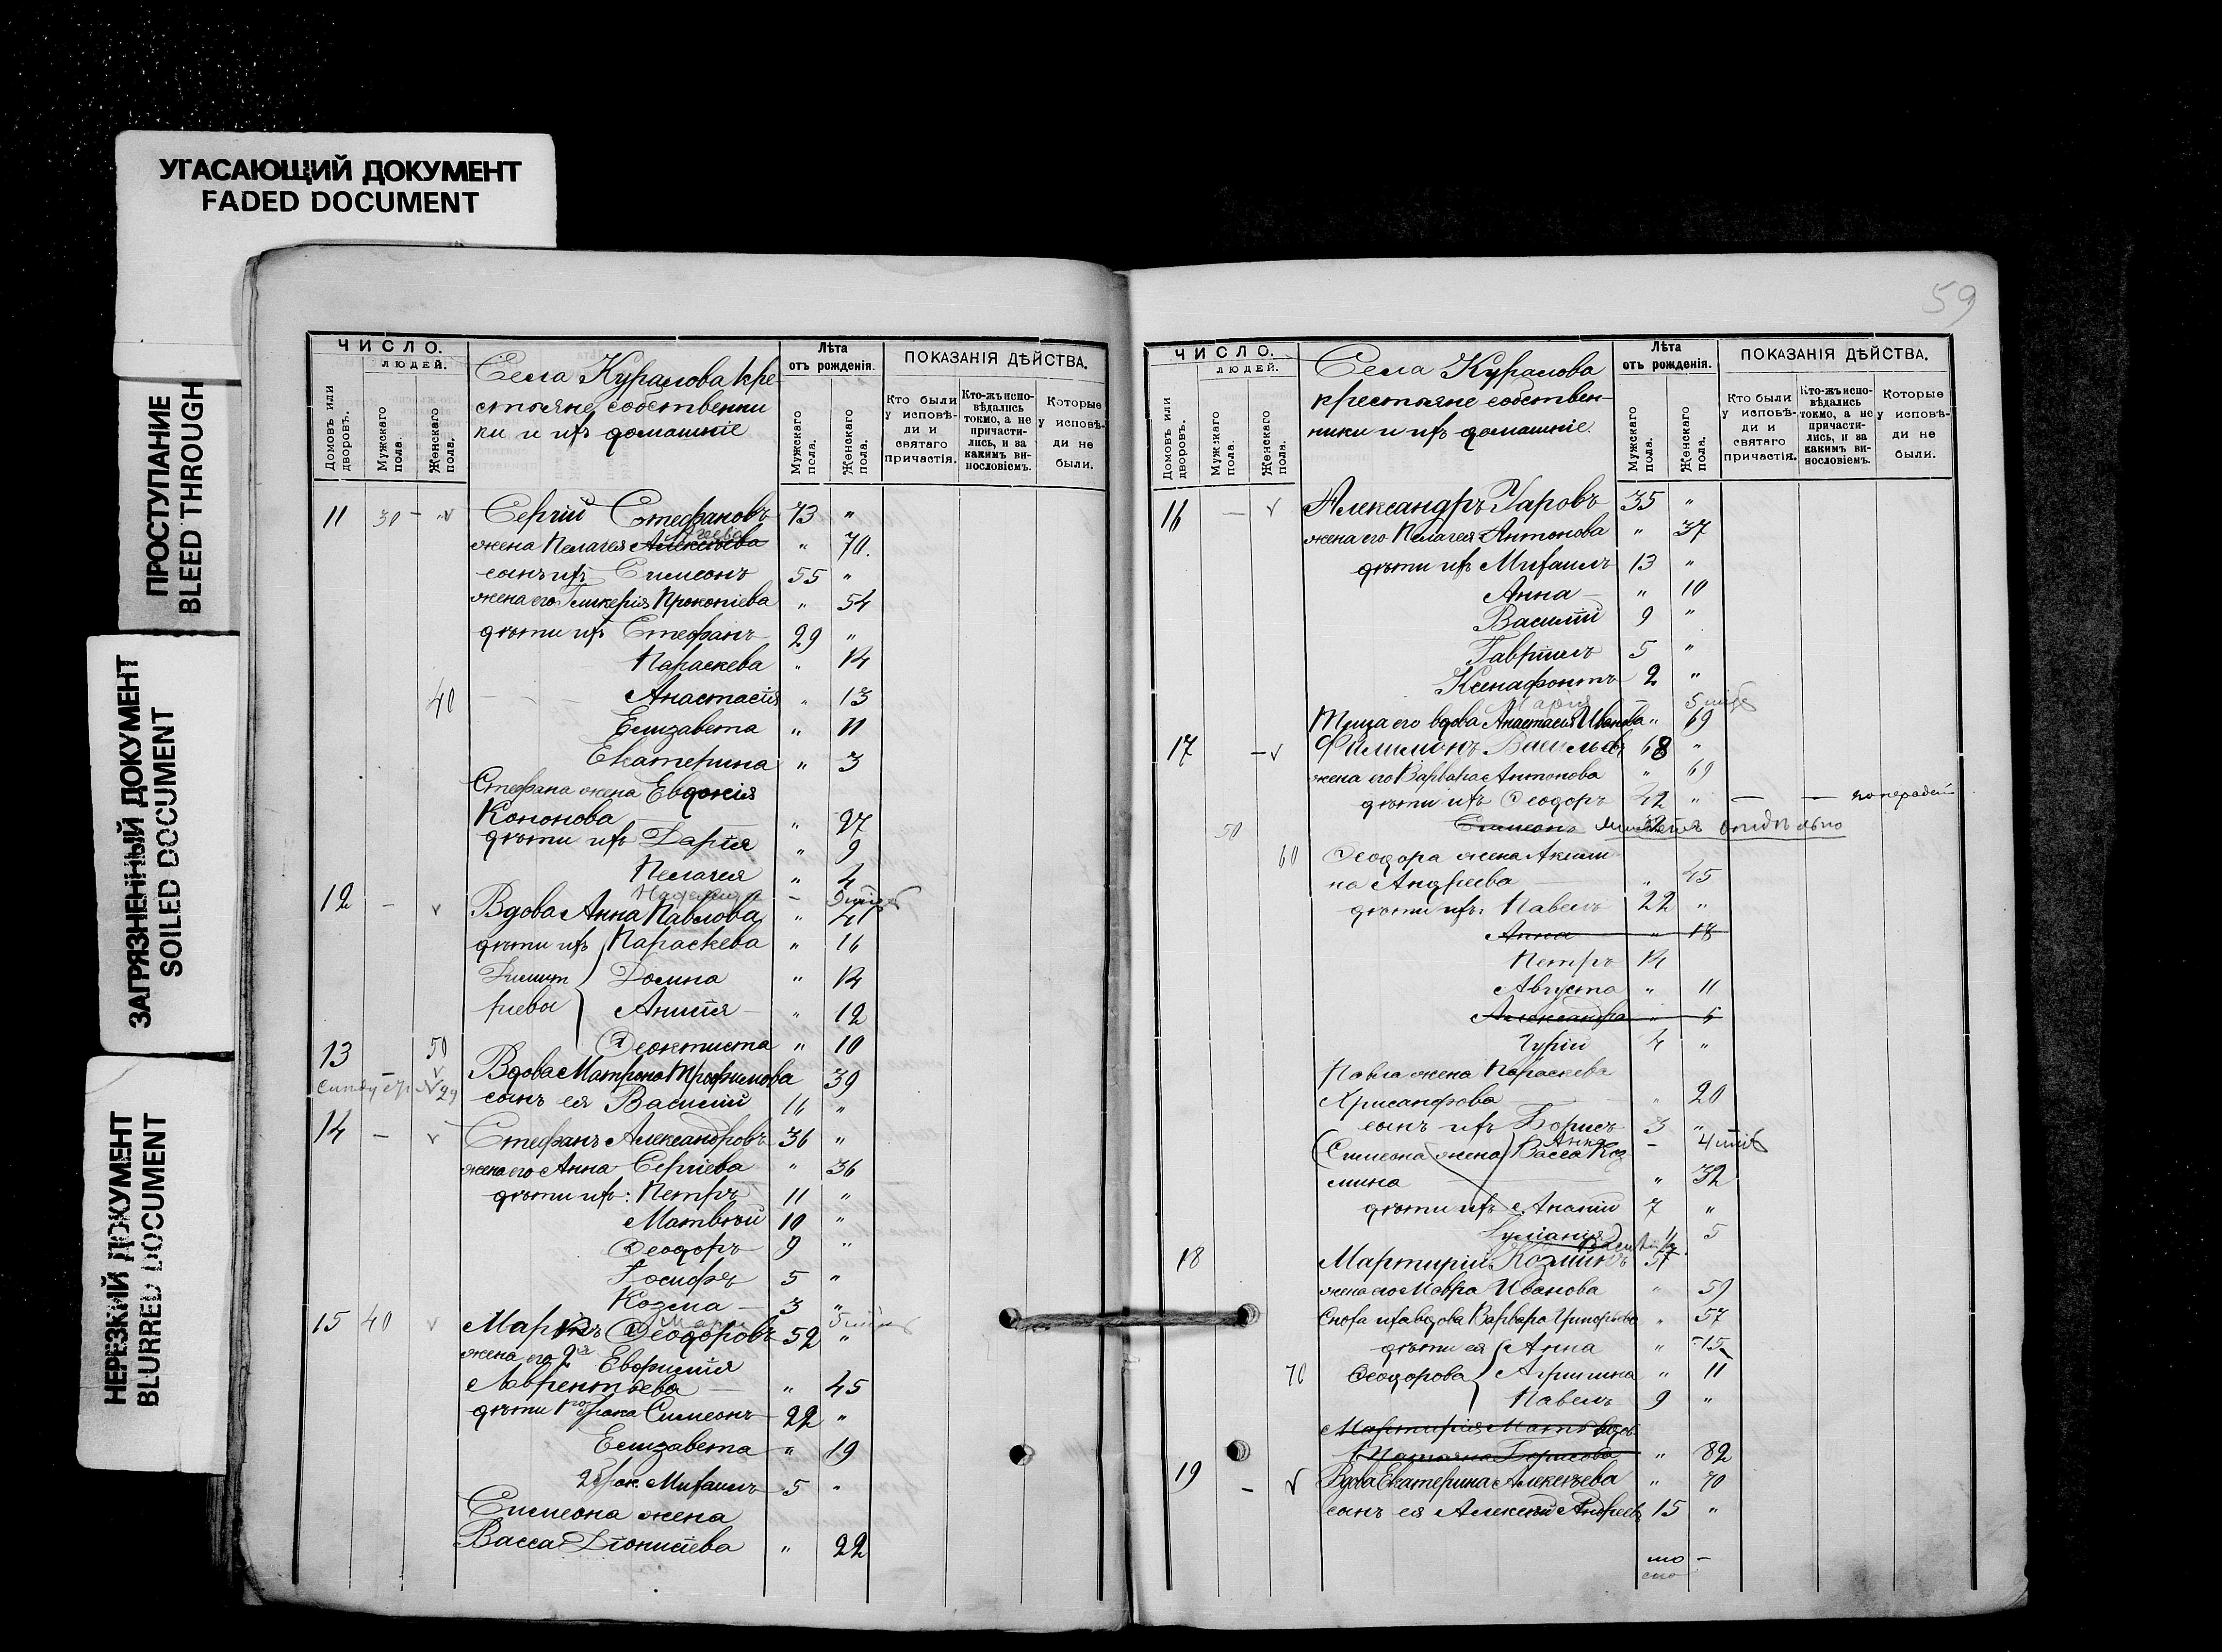 УГАСАЮЩИЙ ДОКУМЕНТ
FADED DOCUMENT
ПРОСТУПАНИЕ
BLEED THROUGH
ЗАГРЯЗНЕННЫЙ ДОКУМЕНТ
SOILED DOCUMENT
НЕРЕЗКИЙ ДОКУМЕНТ
BLURRED DOCUMENT
ЧИСЛО.
ЛЮДЕЙ.
Домовъ или дворовъ.
Мужскаго пола.
Женскаго пола.
Села Куралова кре
стьяне собственни
ки и ихъ домашніе
Лѣта
отъ рожденія.
Мужскаго пола.
Женскаго пола.
ПОКАЗАНІЯ ДѢЙСТВА.
Кто были у исповѣ-ди и святаго причастія.
Кто-жъ испо-вѣдались токмо, а не причасти-лись, и за какимъ ви-нословіемъ.
Которые у исповѣ-ди не были.
11 30 - Сергій Стефановъ 73 "
жена Пелагея Алексѣева " 70.
сынъ ихъ Симеонъ 55 "
жена его Гликерія Прокопіева " 54
дѣти ихъ Стефанъ 29 "
Параскева " 14
40 Анастасія " 13
Елизавета " 11
Екатерина " 3
Стефана жена Евдокія
Кононова " 27
дѣти ихъ Дарія " 9
Пелагея " 4
Надежда -
12 - Вдова Анна Павлова " 41
дѣти ихъ Параскева " 16
Димит Домна " 14
ріевы " 12
50 Ѳеоктиста " 10
13 - Вдова Матрона Трофимова 39
сынъ ея Василій 16 "
14 - Стефанъ Александровъ 36 "
жена его Анна Сергіева " 36
дѣти ихъ: Петръ 11 "
Матвѣй 10 "
Ѳеодоръ 9 "
Іосифъ 5 "
Козма 3 "
15 40 Ѳеодоровъ 52 "
жена его 2я Евфимія
Лаврентьева " 45
дѣти 1го брака Симеонъ 22 "
Елизавета " 19
2 брак. Михаилъ 5 "
Симеона жена
Васса Діонисіева " 22
59
ЧИСЛО.
ЛЮДЕЙ.
Домовъ или дворовъ.
Мужскаго пола.
Женскаго пола.
Села Куралова
крестьяне собствен-
ники и ихъ домашніе.
Лѣта
отъ рожденія.
Мужскаго пола.
Женскаго пола.
ПОКАЗАНІЯ ДѢЙСТВА.
Кто были у исповѣ-ди и святаго причастія.
Кто-жъ испо-вѣдались токмо, а не причасти-лись, и за какимъ ви-нословіемъ.
Которые у исповѣ-ди не были.
16 - Александръ Уаровъ 35 "
жена его Пелагея Антонова " 37
дѣти ихъ Михаилъ 13 "
Анна " 10
Василій 9 "
Гавріилъ 5 "
Ксенафонтъ 2 "
Марія
Теща его вдова Анастасія Иванова " 69
17 - Филимонъ Васильевъ 68 "
жена его Варвара Антонова " 69
дѣти ихъ Ѳеодоръ 42 " по нерадѣн
50 Симеонъ
60 Ѳеодора жена Акили
на Андреева " 45
дѣти ихъ: Павелъ 22 "
Анна " 18
Петръ 14
Августа " 11
Александра " 5
Гурій 4 "
Павла жена Параскева
Хрисанфова " 20
сынъ ихъ Борисъ 3 "
Анна -
Симеона жена Васса Коз
мина " 32
дѣти ихъ Ананій 7 "
5
18 Мартирій Козминъ 57
жена его Мавра Иванова " 59
Сноха ихъ вдова Варвара Григорьева " 57
дѣти ея Анна " 15
70 Ѳеодорова Агрипина " 11
Павелъ 9 "
Мартирія Мать вдов
Татьяна Борисова " 82
19 - Вдова Екатерина Алексѣева " 70
сынъ ея Алексѣй Андреевъ 15 "